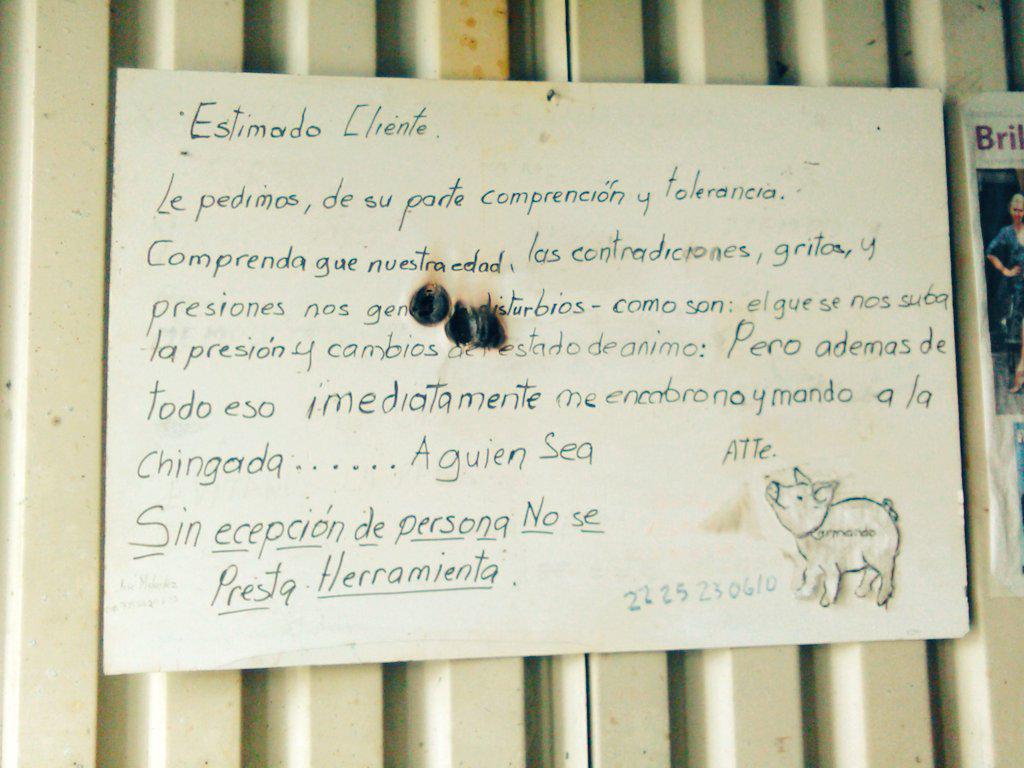 Estimado Cliente.
Le pedimos, de su parte comprención y tolerancia.
Comprenda que nuestra edad, las contradiciones, gritos, y
presiones nos gen disturbios - como son: el que se nos suba
la presión y cambios del estado de animo: Pero ademas de
todo eso imediatamente me encabrono y mando a la
chingada...... A quien Sea
ATTe.
Sin ecepción de persona No se
Presta Herramienta.
Armando
22 25 23 06 10
Bril